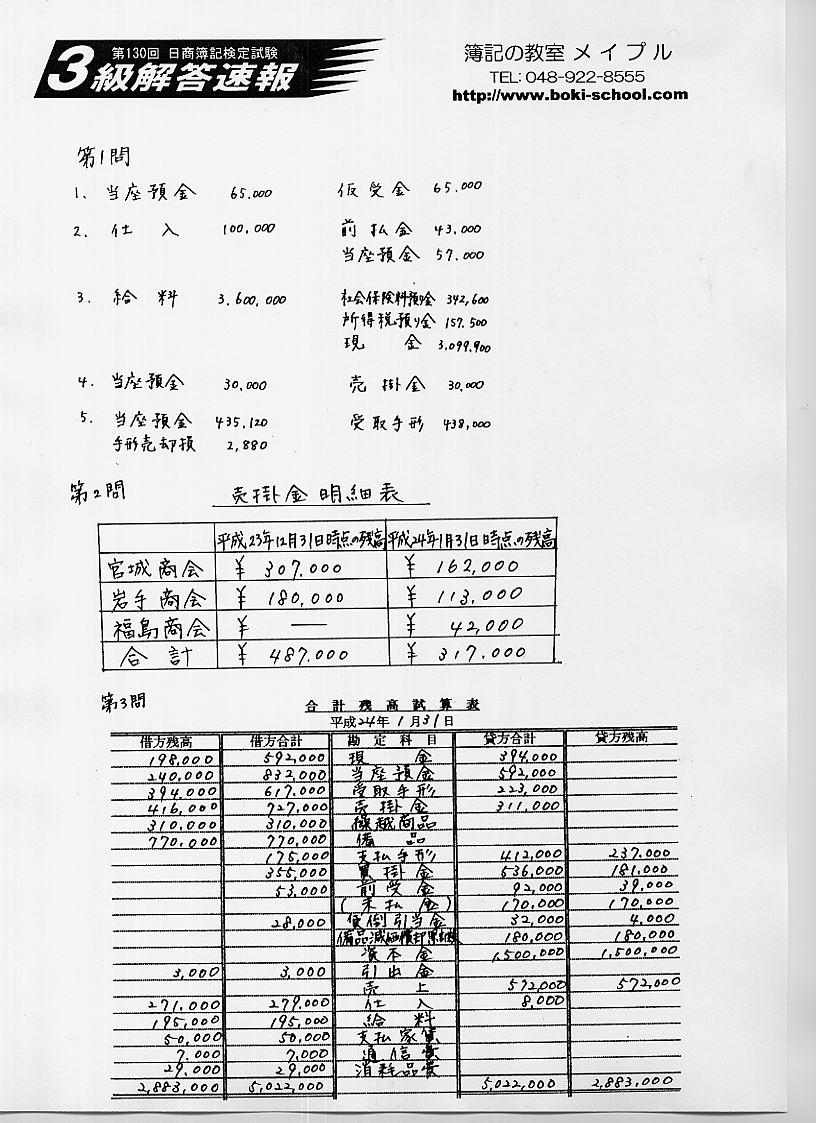 第130回 日商簿記検定試験
3級解答速報
簿記の教室 メイプル
TEL: 048-922-8555
http://www.boki-school.com
第1問
1. 当座預金 65,000 仮受金 65,000
2. 仕入 100,000 前払金 43,000
当座預金 57,000
3. 給料 3,600,000 社会保険料預り金 342,600
所得税預り金 157,500
現金 3,099,900
4. 当座預金 30,000 売掛金 30,000
5. 当座預金 435,120 受取手形 438,000
手形売却損 2,880
第2問 売掛金明細表
平成23年12月31日時点の残高 平成24年1月31日時点の残高
宮城商会 ¥ 307,000 ¥ 162,000
岩手商会 ¥ 180,000 ¥ 113,000
福島商会 ¥ — ¥ 42,000
合計 ¥ 487,000 ¥ 317,000
第3問 合計残高試算表
平成24年1月31日
借方残高 借方合計 勘定科目 貸方合計 貸方残高
198,000 592,000 現金 394,000
240,000 832,000 当座預金 592,000
394,000 617,000 受取手形 223,000
416,000 727,000 売掛金 311,000
310,000 310,000 繰越商品
770,000 770,000 備品
175,000 支払手形 412,000 237,000
355,000 買掛金 536,000 181,000
53,000 前受金 92,000 39,000
(未払金) 170,000 170,000
28,000 貸倒引当金 32,000 4,000
備品減価償却累計額 180,000 180,000
資本金 1,500,000 1,500,000
3,000 3,000 引出金
売上 572,000 572,000
271,000 279,000 仕入 8,000
195,000 195,000 給料
50,000 50,000 支払家賃
7,000 7,000 通信費
29,000 29,000 消耗品費
2,883,000 5,022,000 5,022,000 2,883,000